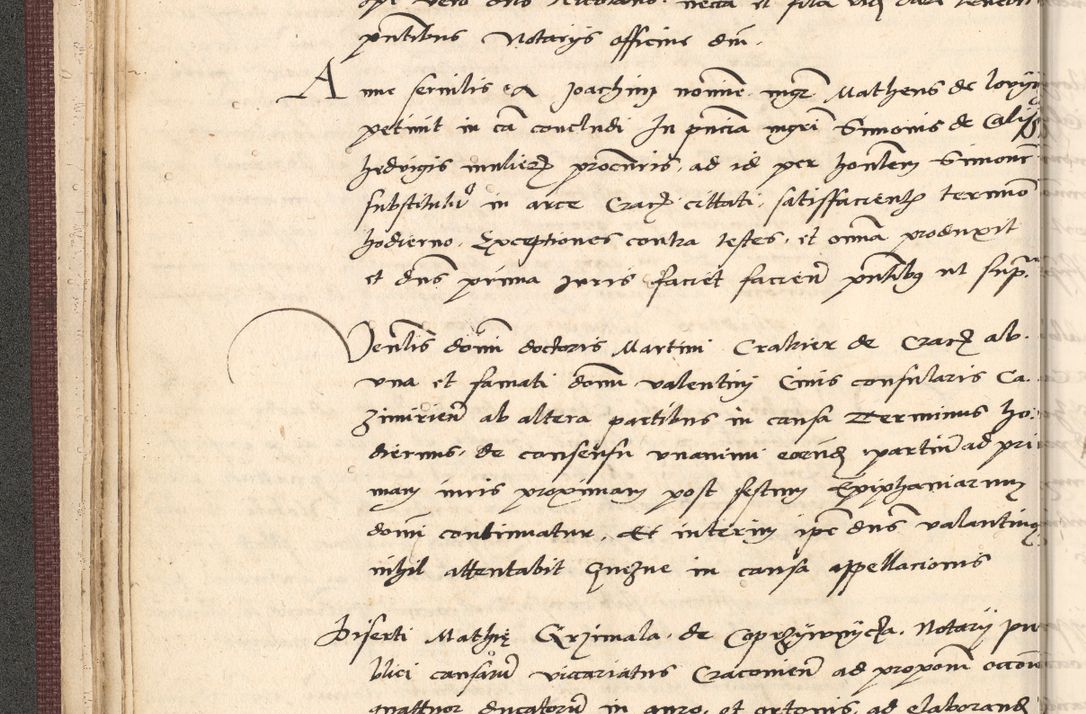 pntibus Notarys officine dni.
Anne servilis ex Joachim nomine mgr Matheus de
petivit in ca concludi In pncia mgri Simonis de Calis
hedvigis mulier procuris, ad id per hontem Simone
substitutu in arce Crac cittati, satisfacient termino
hodierno. Exceptiones contra testes, et omna produxit
et dns prima juris faciet facien pntibus ut sup.
Venlis domi doctoris Martini Crakier de Crac ab
una et famati domi valentini Civis consularis Ca.
zimirien ab altera partibus in causa Terminus ho:
diernus, de consensu unanimi eorund partium ad pri
mam iuris proximam post festum Epiphaniarum
domi continuatur, Et interim ipe dns valantinus
nihil attentabit in causa appellacionis
Diserti Mathię Grzimala de Notarij pu
blici causaru viccariatus Cracovien ad proponi
quattuor ducatoru in auro, et ortonis, ad elaborand